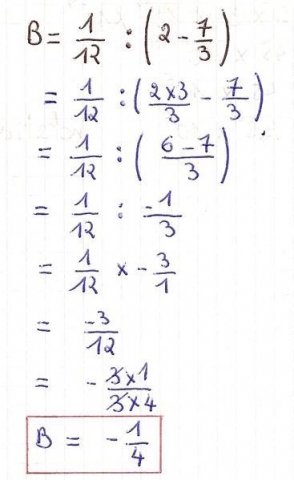 B = 1/12 : (2 - 7/3)
= 1/12 : (2×3/3 - 7/3)
= 1/12 : (6-7/3)
= 1/12 : -1/3
= 1/12 × - 3/1
= -3/12
= - 3×1/3×4
B = - 1/4